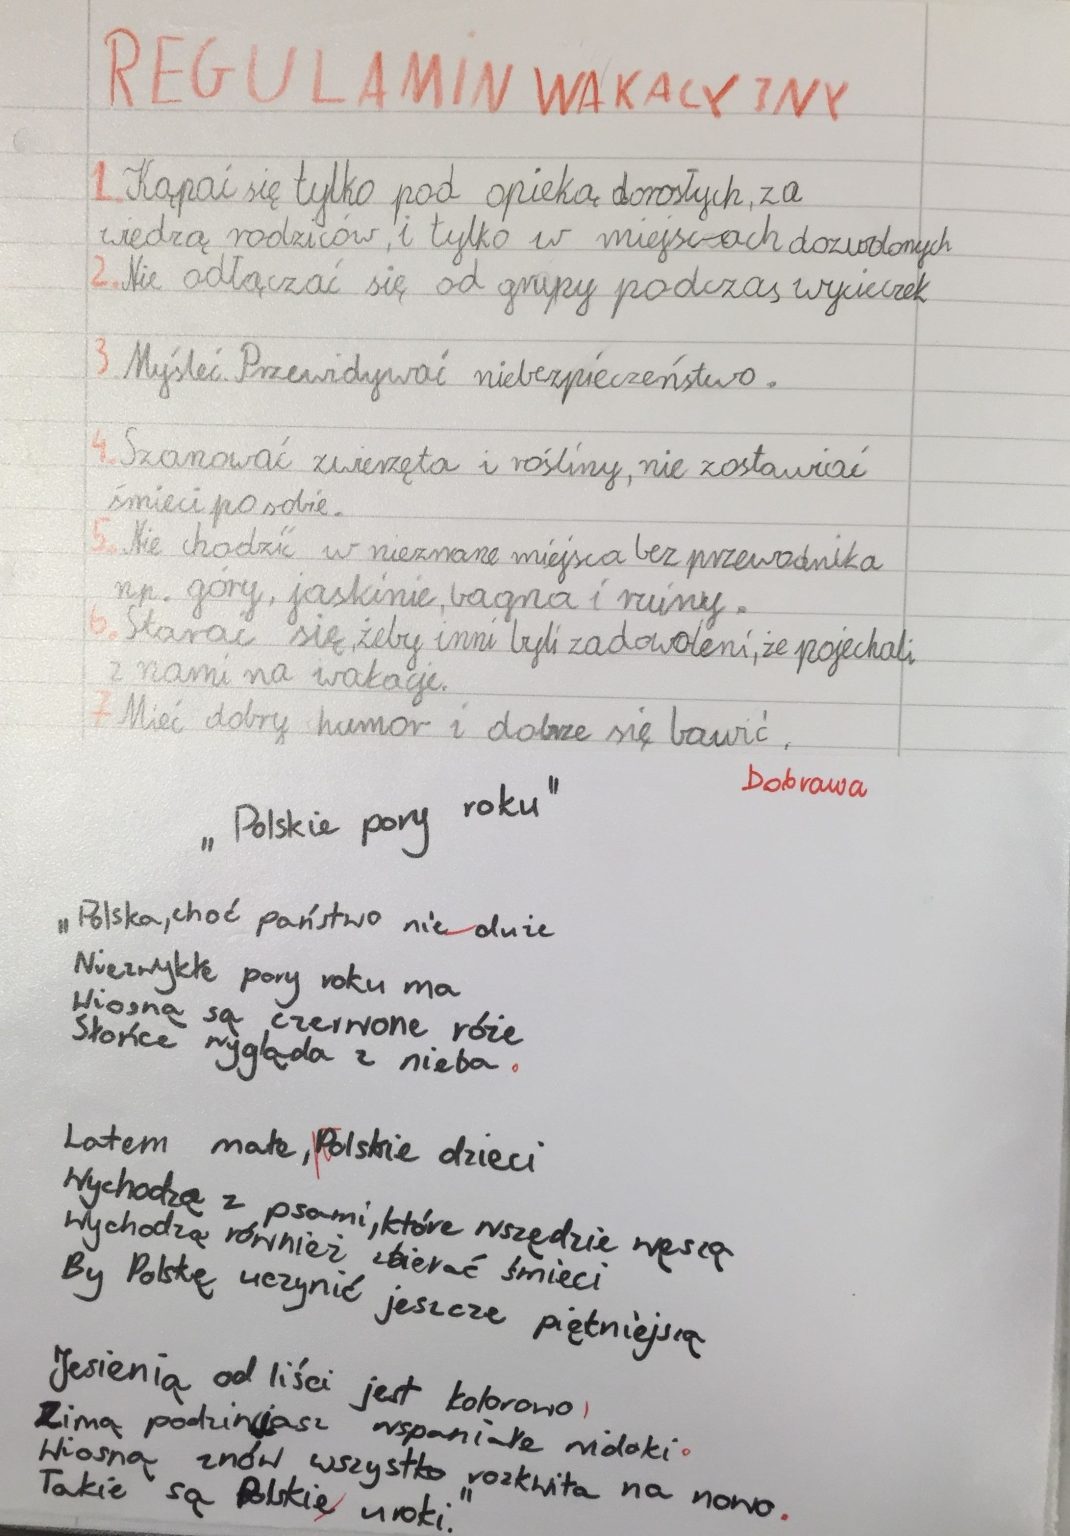 REGULAMIN WAKACYJNY
1. Kąpać się tylko pod opieką dorosłych, za
wiedzą rodziców, i tylko w miejscach dozwolonych
2. Nie odłączać się od grupy podczas wycieczek
3 Myśleć. Przewidywać niebezpieczeństwo.
4. Szanować zwierzęta i rośliny, nie zostawiać
śmieci po sobie.
5. Nie chodzić w nieznane miejsca bez przewodnika
np. góry, jaskinie, bagna i ruiny.
6. Starać się, żeby inni byli zadowoleni, że pojechali
z nami na wakacje.
7 Mieć dobry humor i dobrze się bawić.
Dobrawa
„Polskie pory roku"
„Polska, choć państwo nie duże
Niezwykłe pory roku ma
Wiosną są czerwone róże
Słońce wygląda z nieba.
Latem małe, Polskie dzieci
Wychodzą z psami, które wszędzie węszą
Wychodzą również zbierać śmieci
By Polskę uczynić jeszcze piękniejszą
Jesienią od liści jest kolorowo,
Zimą podziwjasz wspaniałe widoki.
Wiosną znów wszystko rozkwita na nowo.
Takie są Polskie uroki."